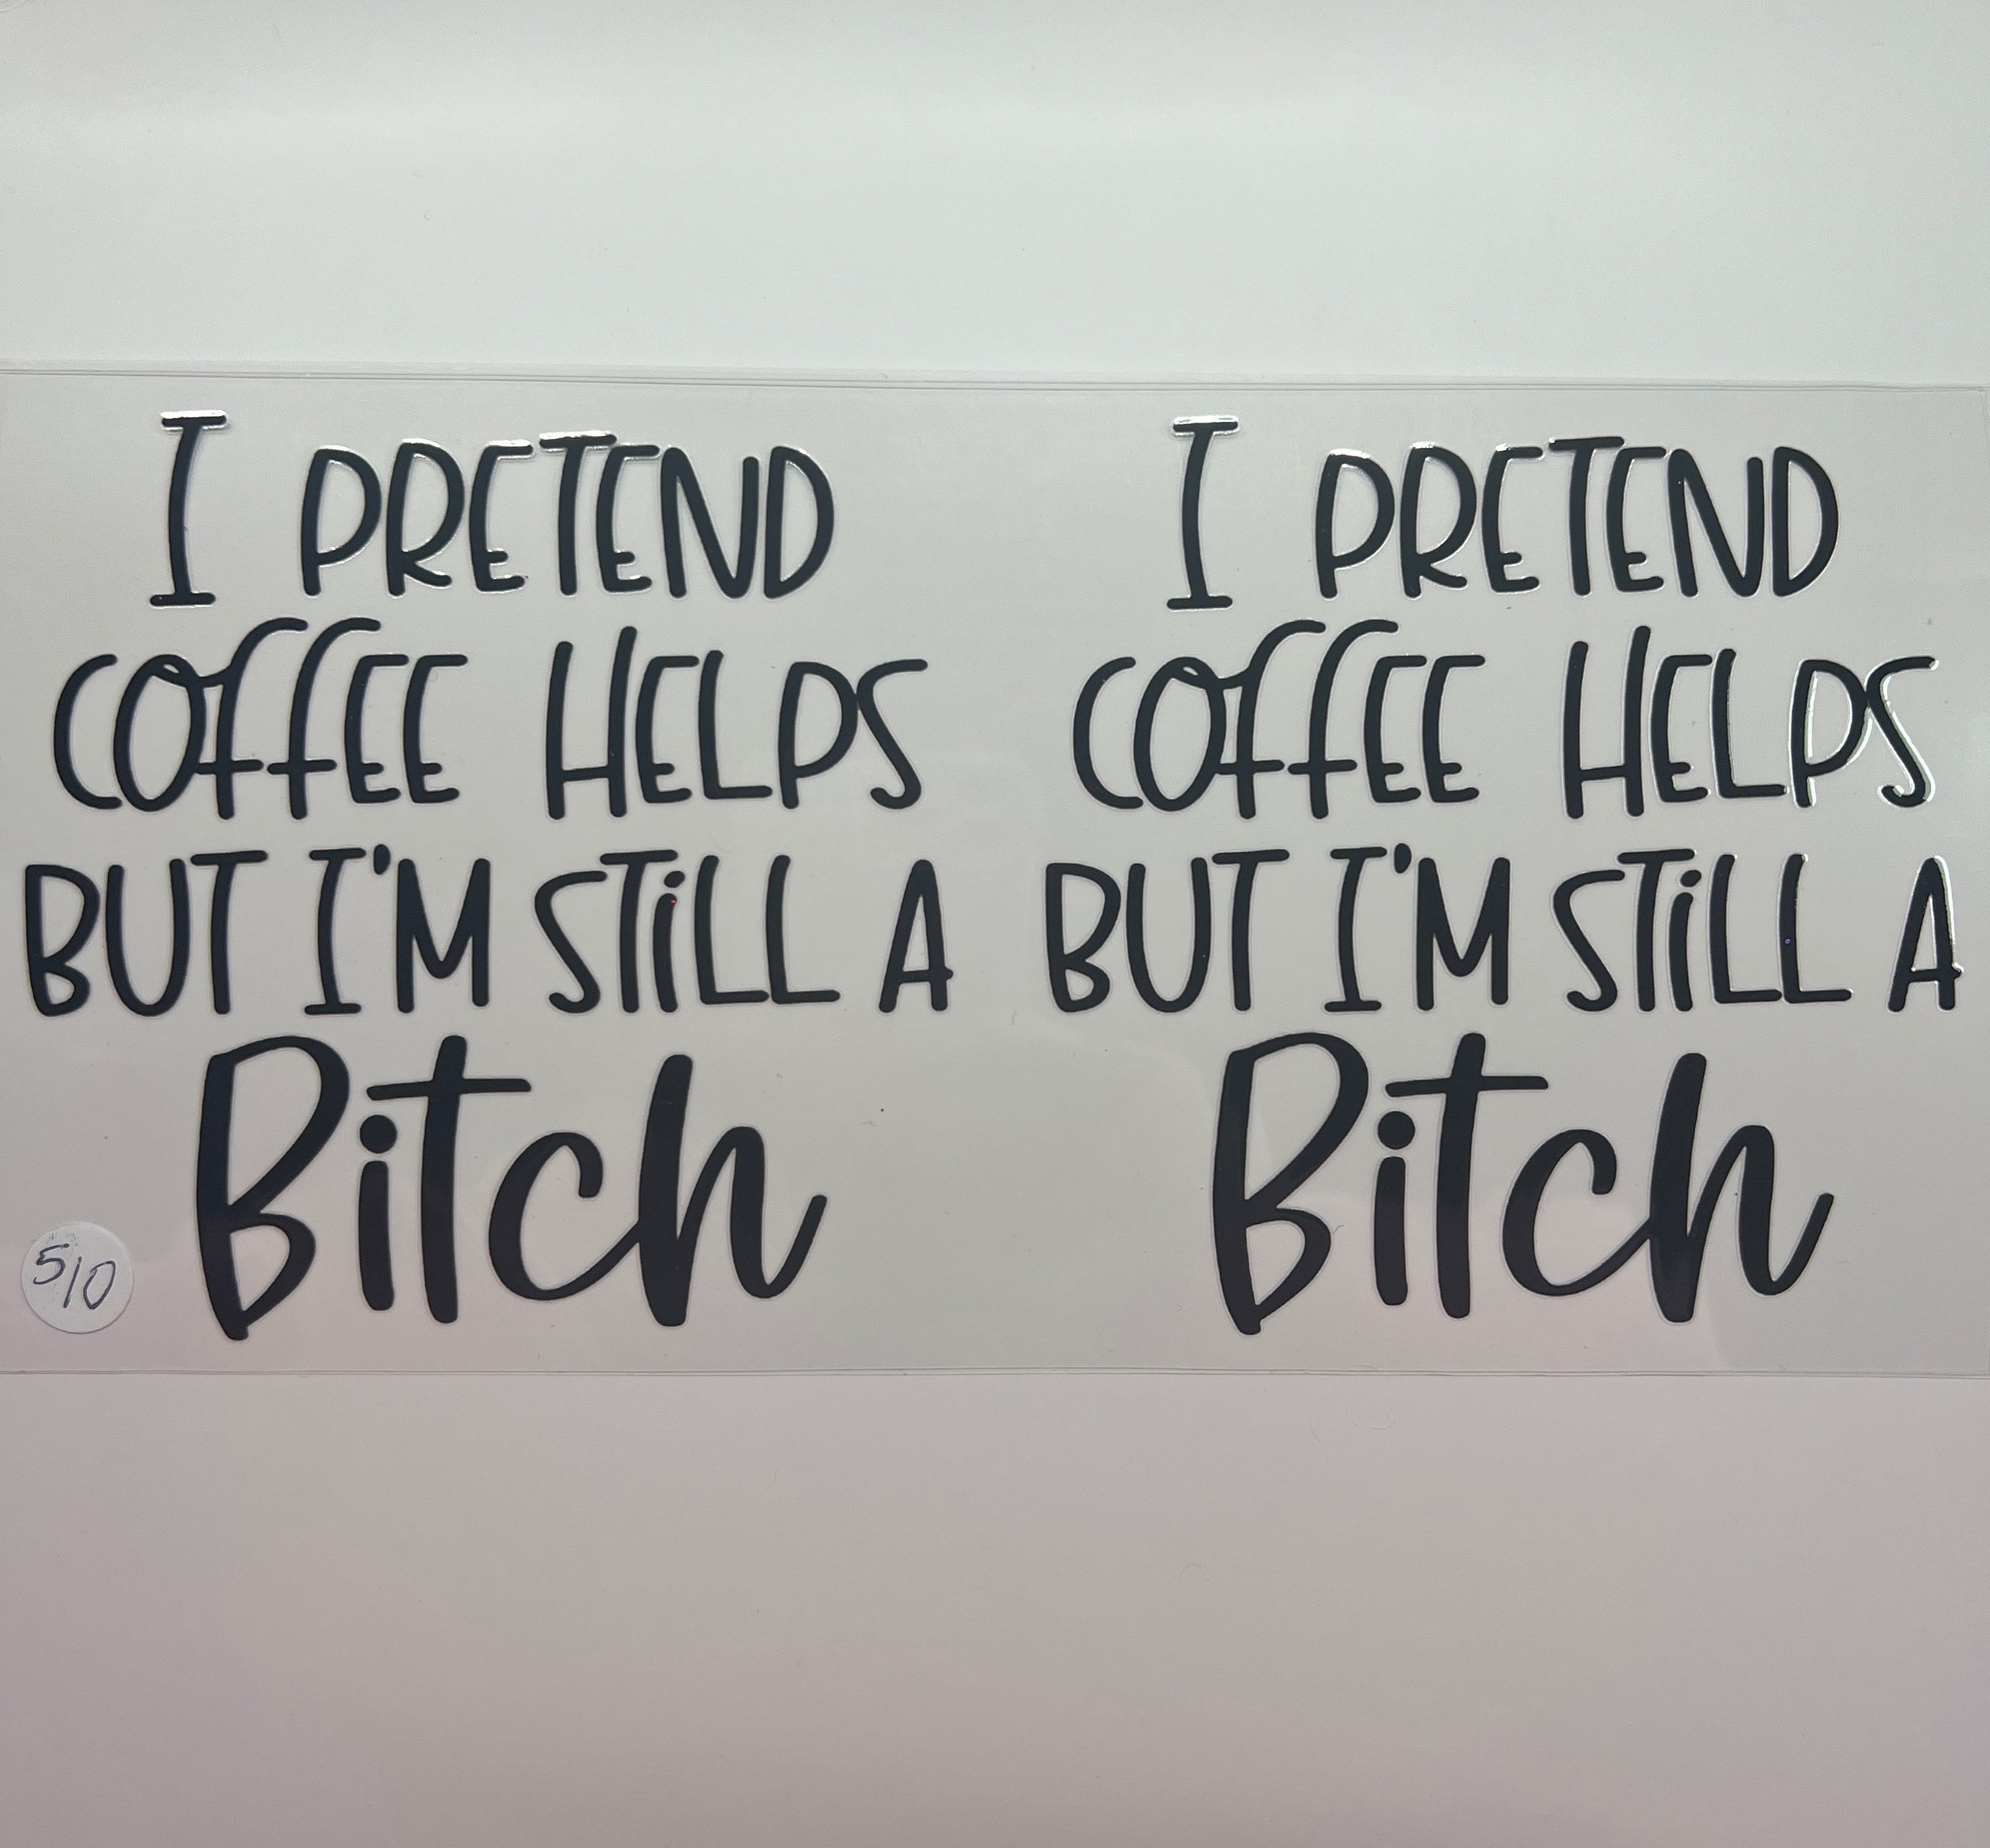 I PRETEND
COFFEE HELPS
BUT I'M STiLL A
Bitch
I PRETEND
COFFEE HELPS
BUT I'M STiLL A
Bitch
510